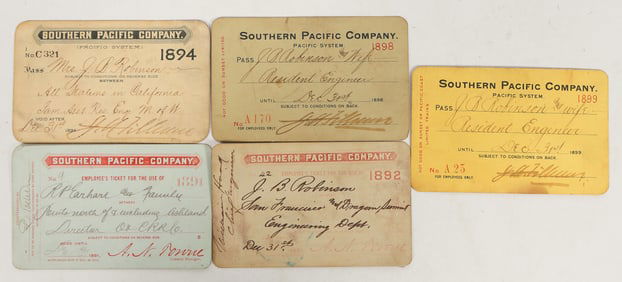 SOUTHERN PACIFIC COMPANY.
(PACIFIC SYSTEM)
No C321 1894
SUBJECT TO CONDITIONS ON REVERSE SIDE
Pass Mrs J B Robinson
BETWEEN
All Stations in California
Dec 31st
VOID AFTER
SOUTHERN PACIFIC COMPANY.
PACIFIC SYSTEM 1898
PASS J B Robinson & Wife
Resident Engineer
UNTIL Dec 31st 1898
SUBJECT TO CONDITIONS ON BACK.
No A170
FOR EMPLOYEES ONLY.
NOT GOOD ON SUNSET LIMITED
SOUTHERN PACIFIC COMPANY.
PACIFIC SYSTEM. 1899
PASS J B Robinson & wife
Resident Engineer
UNTIL Dec 31st 1899
SUBJECT TO CONDITIONS ON BACK.
No A25
FOR EMPLOYEES ONLY.
SOUTHERN PACIFIC COMPANY.
EMPLOYEE'S TICKET FOR THE USE OF
1891
R P Earhart and Family
BETWEEN
Points north of & including Ashland
Director O & C RR Co
GOOD UNTIL
1891.
A. N. Towne
General Manager.
SOUTHERN PACIFIC COMPANY.
EMPLOYEE'S TICKET FOR THE USE OF
42 1892
J. B Robinson
San Francisco and Oregon,
Engineering Dept.
Dec 31st
A. N. Towne
Chief Engineer